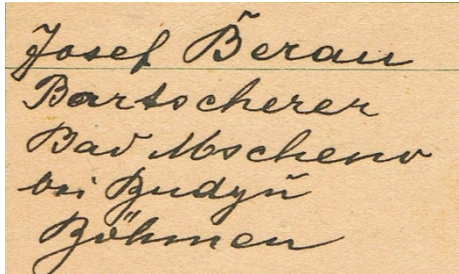 Josef Beran
Bartscherer
Bad Mscheno
bei Budyň
Böhmen